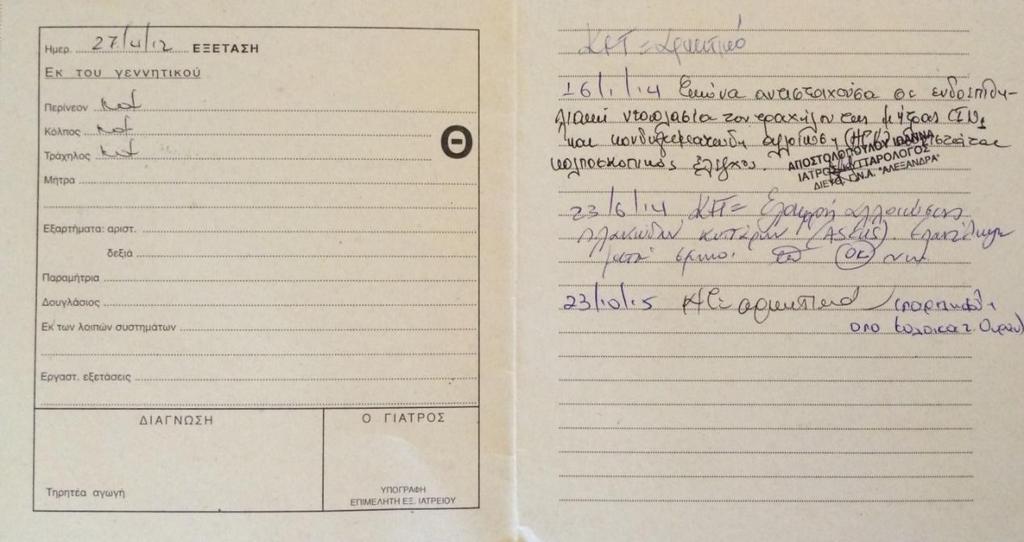 Ημερ. 27/4/12 ΕΞΕΤΑΣΗ
Εκ του γεννητικού
Περίνεον κφ
Κόλπος κφ
Τράχηλος κφ
Θ
Μήτρα
Εξαρτήματα: αριστ.
δεξιά
Παραμήτρια
Δουγλάσιος
Εκ των λοιπών συστημάτων
Εργαστ. εξετάσεις
ΔΙΑΓΝΩΣΗ
Τηρητέα αγωγή
Ο ΓΙΑΤΡΟΣ
ΥΠΟΓΡΑΦΗ
ΕΠΙΜΕΛΗΤΗ ΕΞ. ΙΑΤΡΕΙΟΥ
= Αρνητικό
16/1/14 Εικόνα αντιστοιχούσα σε ενδοεπιθη-
λιακή νεοπλασία του τραχήλου της μήτρας CIN1
και κονδυλωματώδη αλλοίωση (HPV)
κολποσκοπικός έλεγχος.
ΑΠΟΣΤΟΛΟΠΟΥΛΟΥ ΙΩΑΝΝΑ
ΙΑΤΡΟΣ ΚΥΤΤΑΡΟΛΟΓΟΣ
ΔΙΕΥΘ. Γ.Ν.Α. "ΑΛΕΞΑΝΔΡΑ"
23/6/14 = Ελαφρή αλλοιώσεις
πλακωδών κυττάρων (ASCUS)
OK
23/10/15 αρνητικό
από